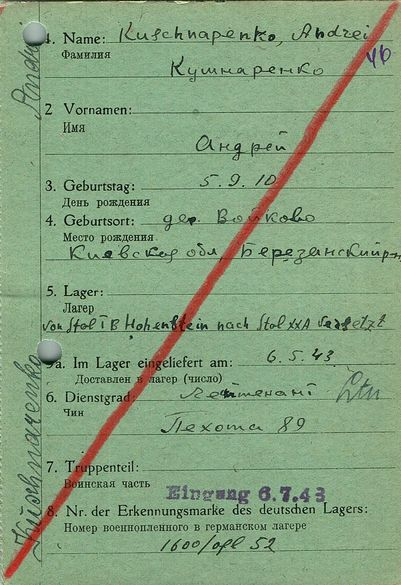 1. Name: Kuschnarenko, Andrei
Фамилия
46
Кушнаренко
2 Vornamen:
Имя
Андрей
3. Geburtstag: 5.9.10
День рождения
4. Geburtsort: дер. Войково
Место рождения
Киевской обл, Березанский рн
5. Lager:
Лагерь
von Stal I B Hohenstein nach Stal XXA versetzt
5a. Im Lager eingeliefert am: 6.5.43
Доставлен в лагерь (число)
6. Dienstgrad: Лейтенант Ltn
Чин
Пехота 89
7. Truppenteil:
Воинская часть
Eingang 6.7.43
8. Nr. der Erkennungsmarke des deutschen Lagers:
Номер военнопленного в германском лагере
1600/ofl 52
Kuschnarenko
Andrei